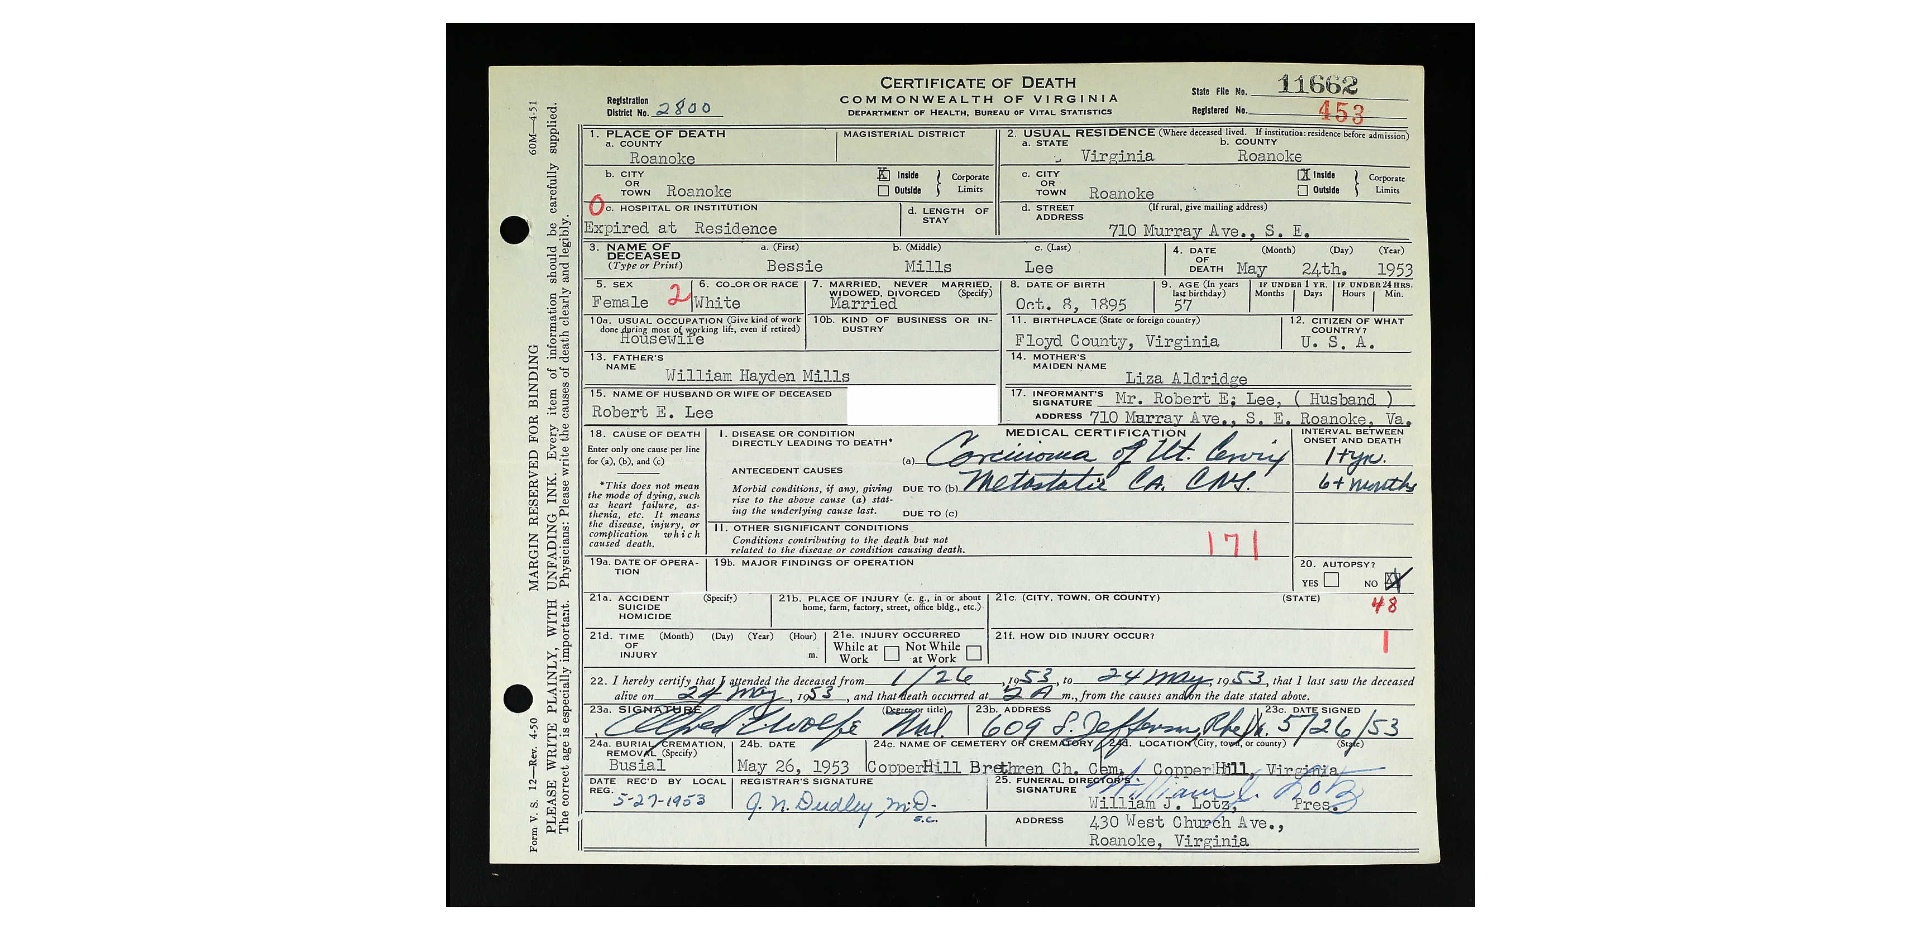 CERTIFICATE OF DEATH
COMMONWEALTH OF VIRGINIA
DEPARTMENT OF HEALTH, BUREAU OF VITAL STATISTICS
Registration District No. 2800
State File No. 11662
Registered No. 453
1. PLACE OF DEATH
a. COUNTY
Roanoke
MAGISTERIAL DISTRICT
2. USUAL RESIDENCE (Where deceased lived. If institution: residence before admission)
a. STATE
Virginia
b. COUNTY
Roanoke
b. CITY OR TOWN Roanoke
X Inside
Outside
Corporate Limits
c. CITY OR TOWN Roanoke
X Inside
Outside
Corporate Limits
0
c. HOSPITAL OR INSTITUTION
Expired at Residence
d. LENGTH OF STAY
d. STREET ADDRESS
(If rural, give mailing address)
710 Murray Ave., S. E.
3. NAME OF DECEASED
(Type or Print)
a. (First)
Bessie
b. (Middle)
Mills
c. (Last)
Lee
4. DATE OF DEATH
(Month) (Day) (Year)
May 24th. 1953
5. SEX
Female
2
6. COLOR OR RACE
White
7. MARRIED, NEVER MARRIED, WIDOWED, DIVORCED (Specify)
Married
8. DATE OF BIRTH
Oct. 8, 1895
9. AGE (In years last birthday)
57
IF UNDER 1 YR.
Months Days
IF UNDER 24 HRS.
Hours Min.
10a. USUAL OCCUPATION (Give kind of work done during most of working life, even if retired)
Housewife
10b. KIND OF BUSINESS OR INDUSTRY
11. BIRTHPLACE (State or foreign country)
Floyd County, Virginia
12. CITIZEN OF WHAT COUNTRY?
U. S. A.
13. FATHER'S NAME
William Hayden Mills
14. MOTHER'S MAIDEN NAME
Liza Aldridge
15. NAME OF HUSBAND OR WIFE OF DECEASED
Robert E. Lee
17. INFORMANT'S SIGNATURE Mr. Robert E. Lee, ( Husband )
ADDRESS 710 Murray Ave., S. E. Roanoke, Va.
18. CAUSE OF DEATH
Enter only one cause per line for (a), (b), and (c)
*This does not mean the mode of dying, such as heart failure, asthenia, etc. It means the disease, injury, or complication which caused death.
MEDICAL CERTIFICATION
INTERVAL BETWEEN ONSET AND DEATH
I. DISEASE OR CONDITION DIRECTLY LEADING TO DEATH*
(a) Carcinoma of Ut. Cervix
1+ yr.
ANTECEDENT CAUSES
Morbid conditions, if any, giving rise to the above cause (a) stating the underlying cause last.
DUE TO (b) Metastatic CA. CNS.
6+ months
DUE TO (c)
II. OTHER SIGNIFICANT CONDITIONS
Conditions contributing to the death but not related to the disease or condition causing death.
171
19a. DATE OF OPERATION
19b. MAJOR FINDINGS OF OPERATION
20. AUTOPSY?
YES NO X
21a. ACCIDENT SUICIDE HOMICIDE (Specify)
21b. PLACE OF INJURY (e. g., in or about home, farm, factory, street, office bldg., etc.)
21c. (CITY, TOWN, OR COUNTY) (STATE)
48
21d. TIME OF INJURY (Month) (Day) (Year) (Hour) m.
21e. INJURY OCCURRED
While at Work Not While at Work
21f. HOW DID INJURY OCCUR?
1
22. I hereby certify that I attended the deceased from 1/26, 1953, to 24 May, 1953, that I last saw the deceased
alive on 24 May, 1953, and that death occurred at 2 A m., from the causes and on the date stated above.
23a. SIGNATURE (Degree or title)
Alfred Wolfe M.D.
23b. ADDRESS
609 S. Jefferson,
23c. DATE SIGNED
5/26/53
24a. BURIAL, CREMATION, REMOVAL (Specify)
Busial
24b. DATE
May 26, 1953
24c. NAME OF CEMETERY OR CREMATORY
CopperHill Brethren Ch. Cem.
24d. LOCATION (City, town, or county) (State)
Copper Hill, Virginia
DATE REC'D BY LOCAL REG.
5-27-1953
REGISTRAR'S SIGNATURE
J. N. Dudley, M.D.
25. FUNERAL DIRECTOR'S SIGNATURE
William J. Lotz
William J. Lotz, Pres.
ADDRESS 430 West Church Ave.,
Roanoke, Virginia
Form V. S. 12—Rev. 4-50 MARGIN RESERVED FOR BINDING 60M—4-51
PLEASE WRITE PLAINLY, WITH UNFADING INK. Every item of information should be carefully supplied.
The correct age is especially important. Physicians: Please write the causes of death clearly and legibly.